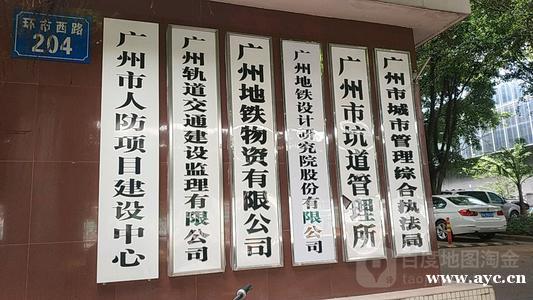 环市西路
204
广州市人防项目建设中心
广州轨道交通建设监理有限公司
广州地铁物资有限公司
广州地铁设计研究院股份有限公司
广州市坑道管理所
广州市城市管理综合执法局
百度地图淘金
www.ayc.cn